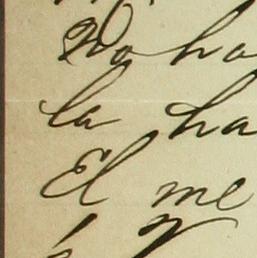 No ha
la ha
El me